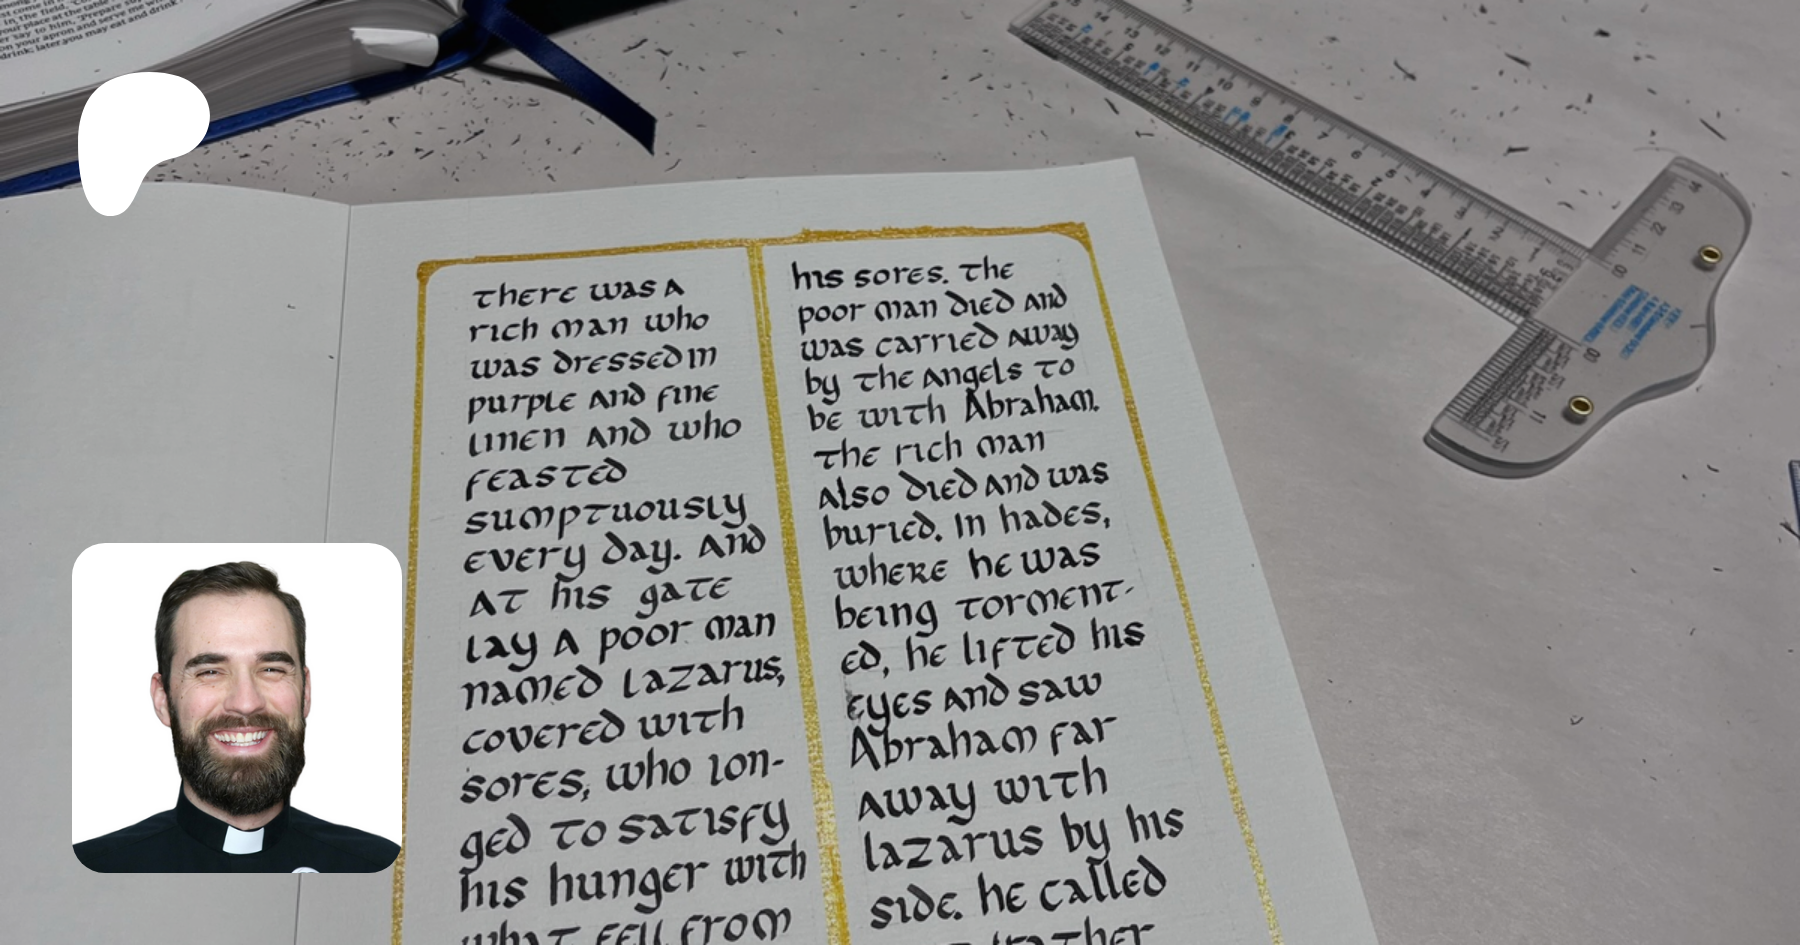 in the field, "Co
your place at the table
er say to him, "Prepare su
on your apron and serve me w
drink; later you may eat and drink
there was a
rich man who
was dressed in
purple and fine
linen and who
feasted
sumptuously
every day. And
at his gate
lay a poor man
named lazarus,
covered with
sores, who lon-
ged to satisfy
his hunger with
what fell from
his sores. the
poor man died and
was carried away
by the angels to
be with Abraham.
the rich man
also died and was
buried. In hades,
where he was
being torment-
ed, he lifted his
eyes and saw
Abraham far
away with
lazarus by his
side. he called